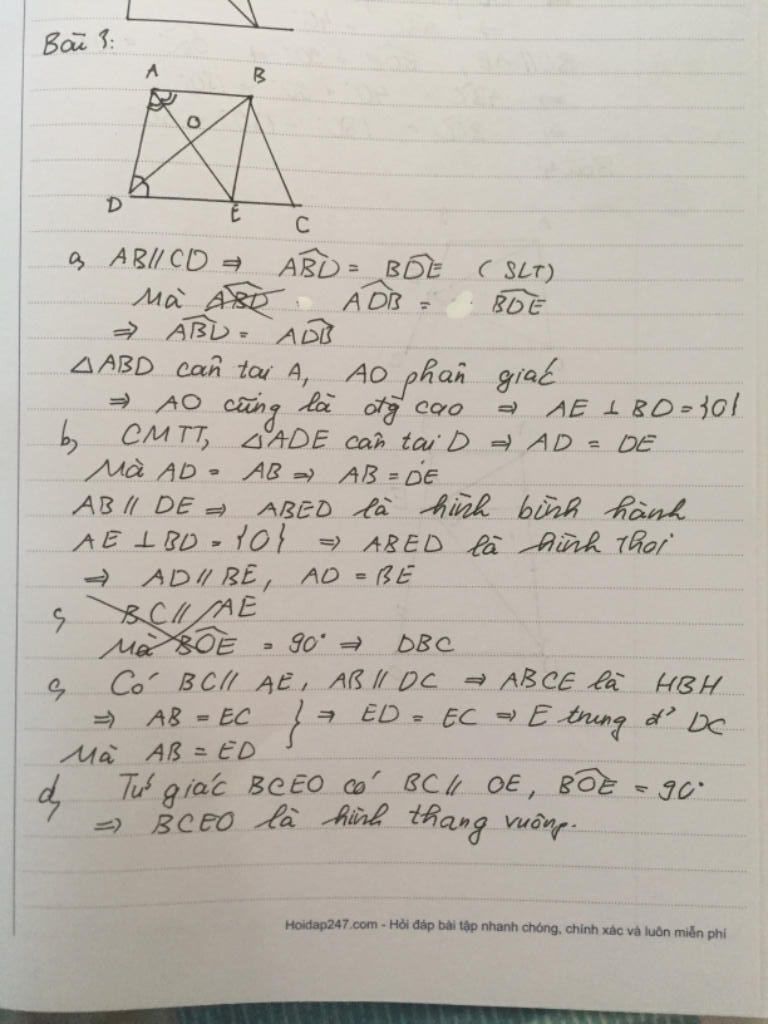 Bài 3:
A B
O
D E C
a, AB//CD ⇒ ABD = BDE (SLT)
Mà ABD ADB = BDE
⇒ ABD = ADB
△ABD cân tại A, AO phân giác
⇒ AO cũng là đg cao ⇒ AE ⊥ BD = {O}
b, CMTT, △ADE cân tại D ⇒ AD = DE
Mà AD = AB ⇒ AB = DE
AB // DE ⇒ ABED là hình bình hành
AE ⊥ BD = {O} ⇒ ABED là hình thoi
⇒ AD // BE, AD = BE
c, BC // AE
Mà BOE = 90° ⇒ DBC
c, Có BC // AE, AB // DC ⇒ ABCE là HBH
⇒ AB = EC } ⇒ ED = EC ⇒ E trung đ' DC
Mà AB = ED
d, Tứ giác BCEO có BC // OE, BOE = 90°
⇒ BCEO là hình thang vuông.
Hoidap247.com - Hỏi đáp bài tập nhanh chóng, chính xác và luôn miễn phí